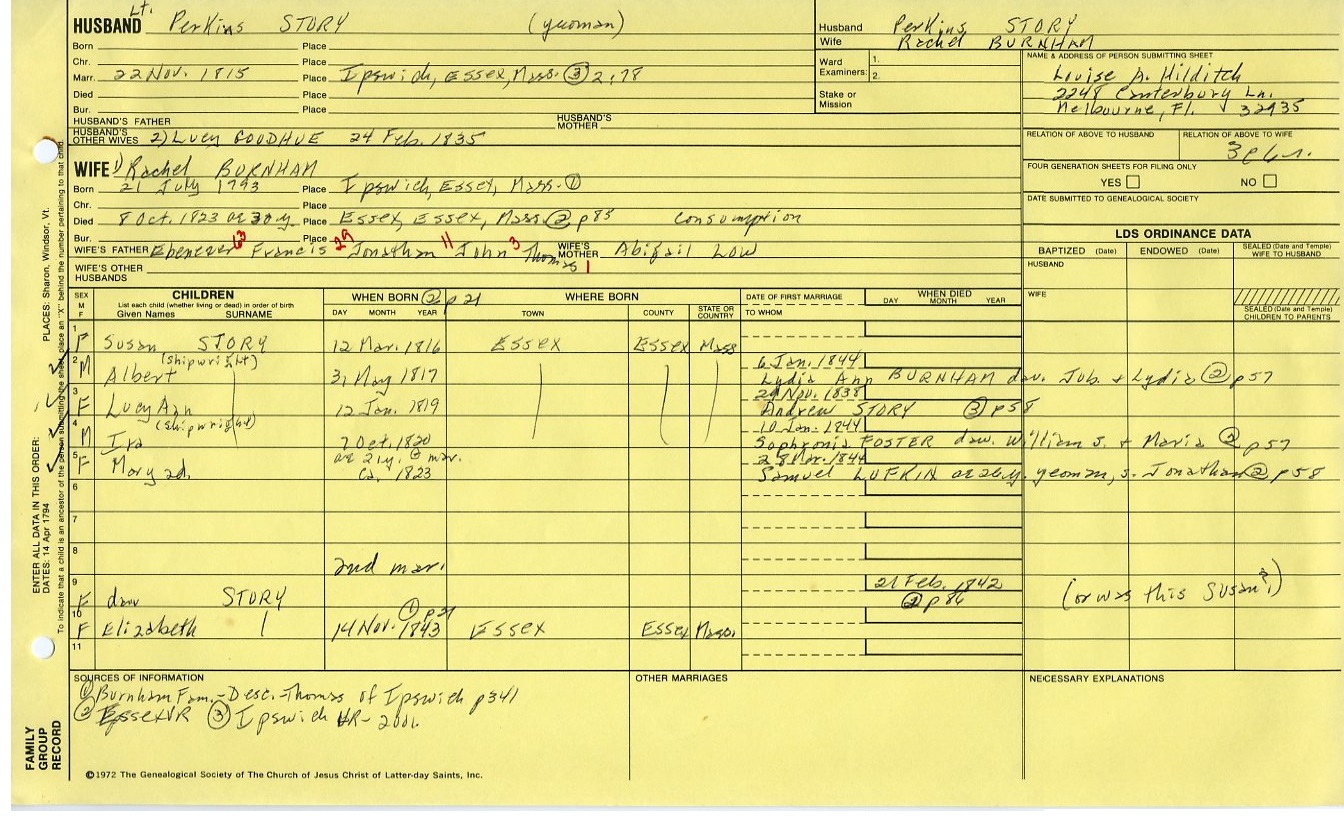 HUSBAND Lt. Perkins STORY (yeoman)
Born Place
Chr. Place
Marr. 22 Nov. 1815 Place Ipswich, Essex, Mass. ③ 2:78
Died Place
Bur. Place
HUSBAND'S FATHER HUSBAND'S MOTHER
HUSBAND'S OTHER WIVES 2) Lucy GOODHUE 24 Feb. 1835
Husband Perkins STORY
Wife Rachel BURNHAM
Ward Examiners: 1.
2.
Stake or Mission
NAME & ADDRESS OF PERSON SUBMITTING SHEET
Louise A. Hilditch
2248 Canterbury Ln.
Melbourne, Fl. 32935
RELATION OF ABOVE TO HUSBAND RELATION OF ABOVE TO WIFE
FOUR GENERATION SHEETS FOR FILING ONLY
YES NO
DATE SUBMITTED TO GENEALOGICAL SOCIETY
WIFE 1) Rachel BURNHAM
Born 21 July 1793 Place Ipswich, Essex, Mass. ①
Chr. Place
Died 8 Oct. 1823 ae 30 y. Place Essex, Essex, Mass. ② p85 Consumption
Bur. Place
WIFE'S FATHER Ebenezer 63 Francis 29 Jonathan 11 John 3 Thomas 1 WIFE'S MOTHER Abigail LOW
WIFE'S OTHER HUSBANDS
LDS ORDINANCE DATA
BAPTIZED (Date) ENDOWED (Date) SEALED (Date and Temple) WIFE TO HUSBAND
HUSBAND
WIFE
SEALED (Date and Temple) CHILDREN TO PARENTS
SEX M F
CHILDREN
List each child (whether living or dead) in order of birth
Given Names SURNAME
WHEN BORN ② p21
DAY MONTH YEAR
WHERE BORN
TOWN COUNTY STATE OR COUNTRY
DATE OF FIRST MARRIAGE
TO WHOM
WHEN DIED
DAY MONTH YEAR
1 F Susan STORY 12 Mar. 1816 Essex Essex Mass
2 M (shipwright) Albert 31 May 1817 6 Jan. 1844
Lydia Ann BURNHAM dau. Job. + Lydia ② p57
3 F Lucy Ann 12 Jan. 1819 29 Nov. 1838
Andrew STORY ③ p58
4 M (shipwright) Ira 7 Oct. 1820 10 Jan. 1844
Sophronia FOSTER dau. William S. + Maria ② p57
5 F Mary ad. ae 21y. @ mar. ca. 1823 28 Mar. 1844
Samuel LUFKIN ae 26y. yeoman, s. Jonathan ② p58
6
7
8 2nd mar.
9 F dau STORY 21 Feb. 1842 ② p86 (or was this Susan?)
10 F Elizabeth 14 Nov. 1843 ① p21 Essex Essex Mass.
11
SOURCES OF INFORMATION
① Burnham Fam.-Desc.-Thomas of Ipswich p341
② Essex VR ③ Ipswich VR-
OTHER MARRIAGES
NECESSARY EXPLANATIONS
©1972 The Genealogical Society of The Church of Jesus Christ of Latter-day Saints, Inc.
FAMILY GROUP RECORD
ENTER ALL DATA IN THIS ORDER:
DATES: 14 Apr 1794
PLACES: Sharon, Windsor, Vt.
To indicate that a child is an ancestor of the person submitting the sheet, place an "X" behind the number pertaining to that child.